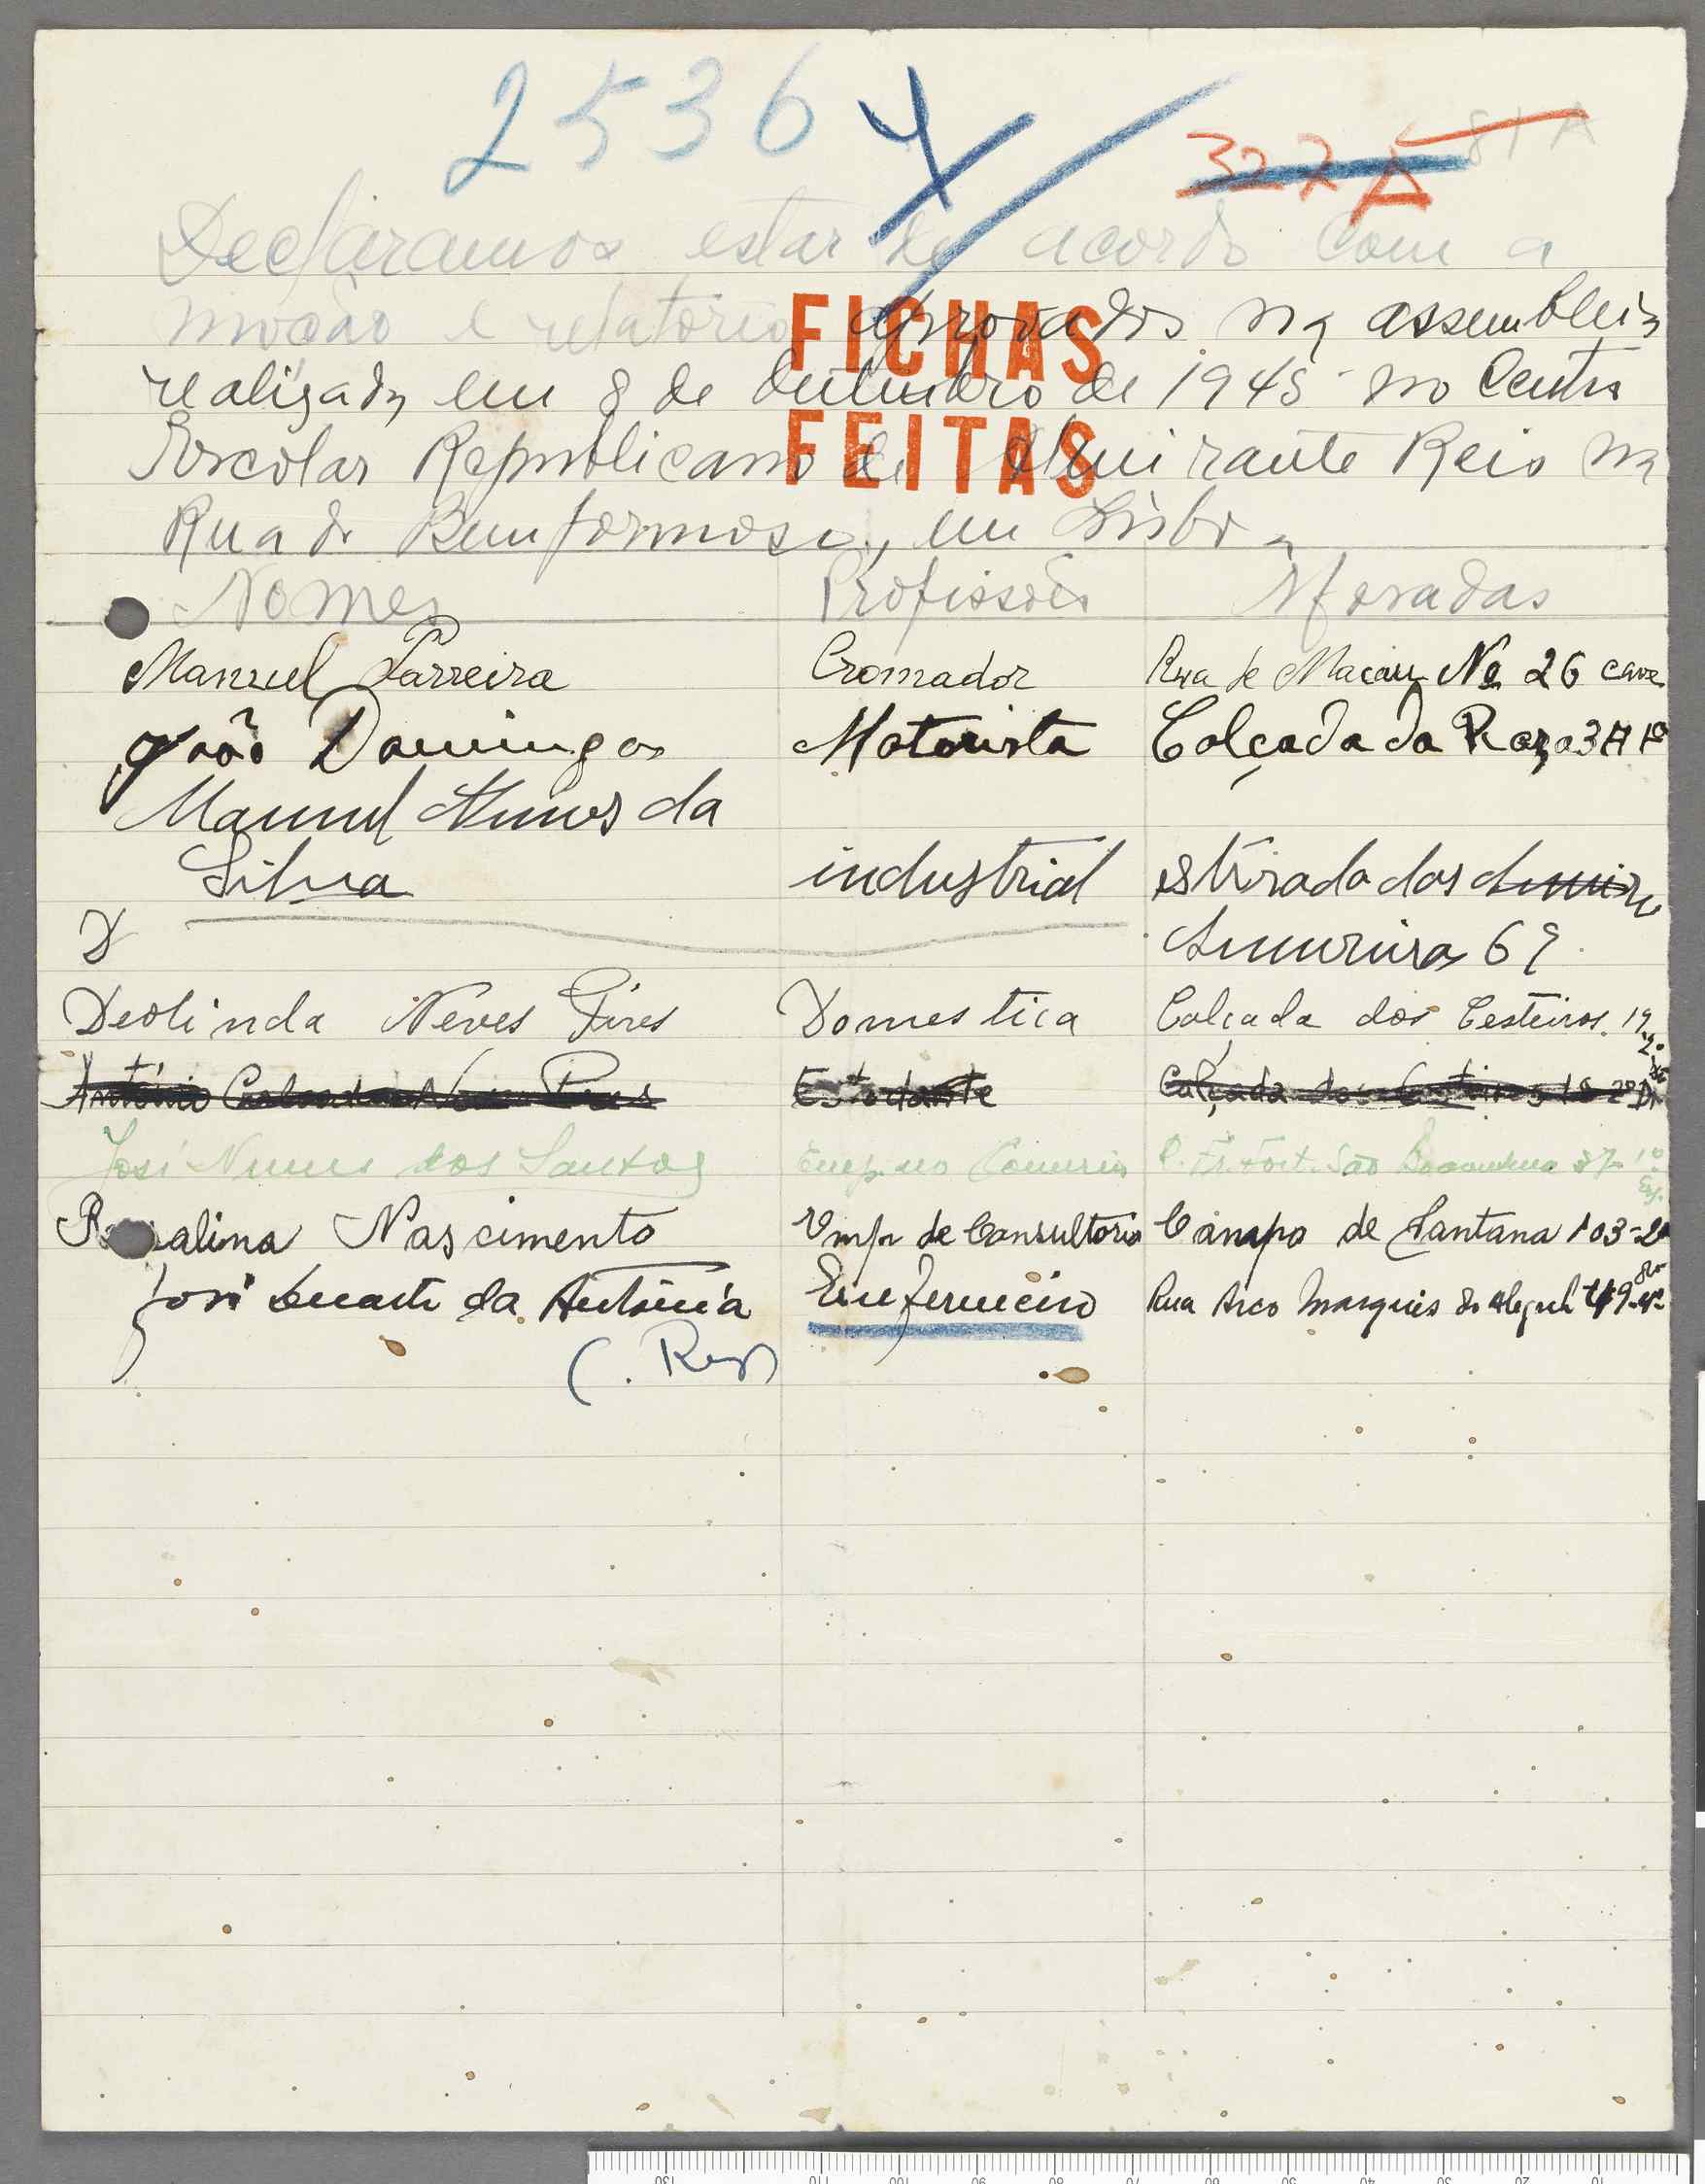 2536
327 A 81 A
Declaramos estar de acordo com a
moção e relatorio aprovados na assembleia
FICHAS
realizada em 8 de Outubro de 1945 no Centro
FEITAS
Escolar Republicano de Almirante Reis na
Rua do Bemformoso, em Lisboa
Nomes Profissões Moradas
Manuel Parreira Cromador Rua de Macau Nº 26 cave
João Domingos Motorista Calçada da Roza 3A 1º
Manuel Nunes da
Silva industrial estrada das
D
Amoreiras 69
Deolinda Neves Pires Domestica Calçada dos Cesteiros 19
António Neves Pires Estudante Calçada dos Cesteiros 18 2º D
José Nunes dos Santos Emp. no Comercio
Rosalina Nascimento Emp. de Consultorio Campo de Santana 103-2º
José Duarte da Antónia Enfermeiro Rua Arco Marquês do Alegrete